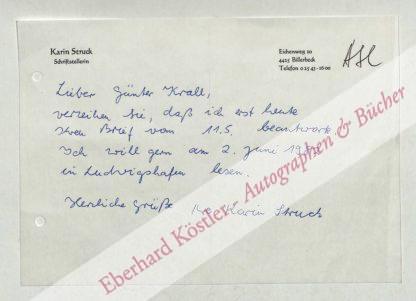 Karin Struck
Schriftstellerin
Eichenweg 10
4425 Billerbeck
Telefon 0 25 43-16 00
Lieber Günter Krall,
verzeihen Sie, daß ich erst heute
Ihren Brief vom 11.5. beantworte
Ich will gern am 2. Juni
in Ludwigshafen lesen.
Herzliche Grüße Ihre Karin Struck
Eberhard Köstler Autographen & Bücher